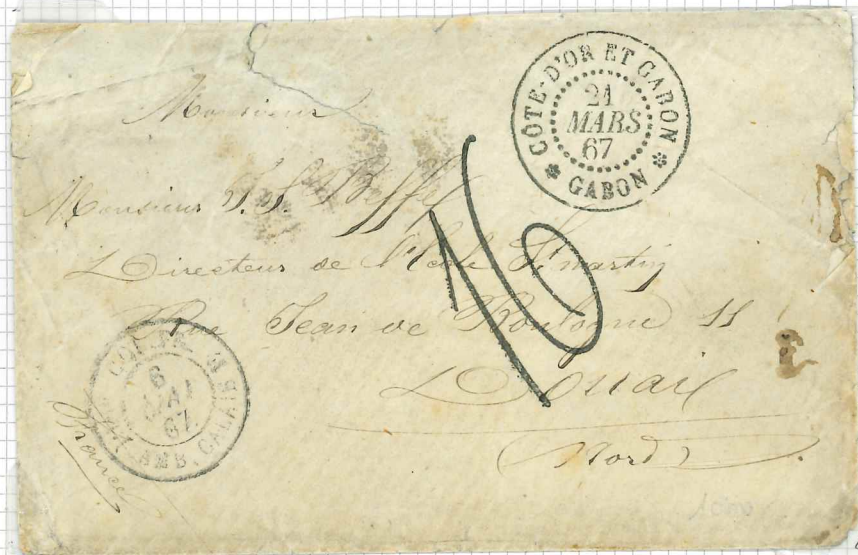 CÔTE-D'OR ET GABON
21
MARS
67
GABON
Monsieur
Monsieur J. S. Beffy
16
Directeur de St martin
Rue Jean de Boulogne 11
Douai
(Nord)
6
MAI
67
AMB. CALAIS
France